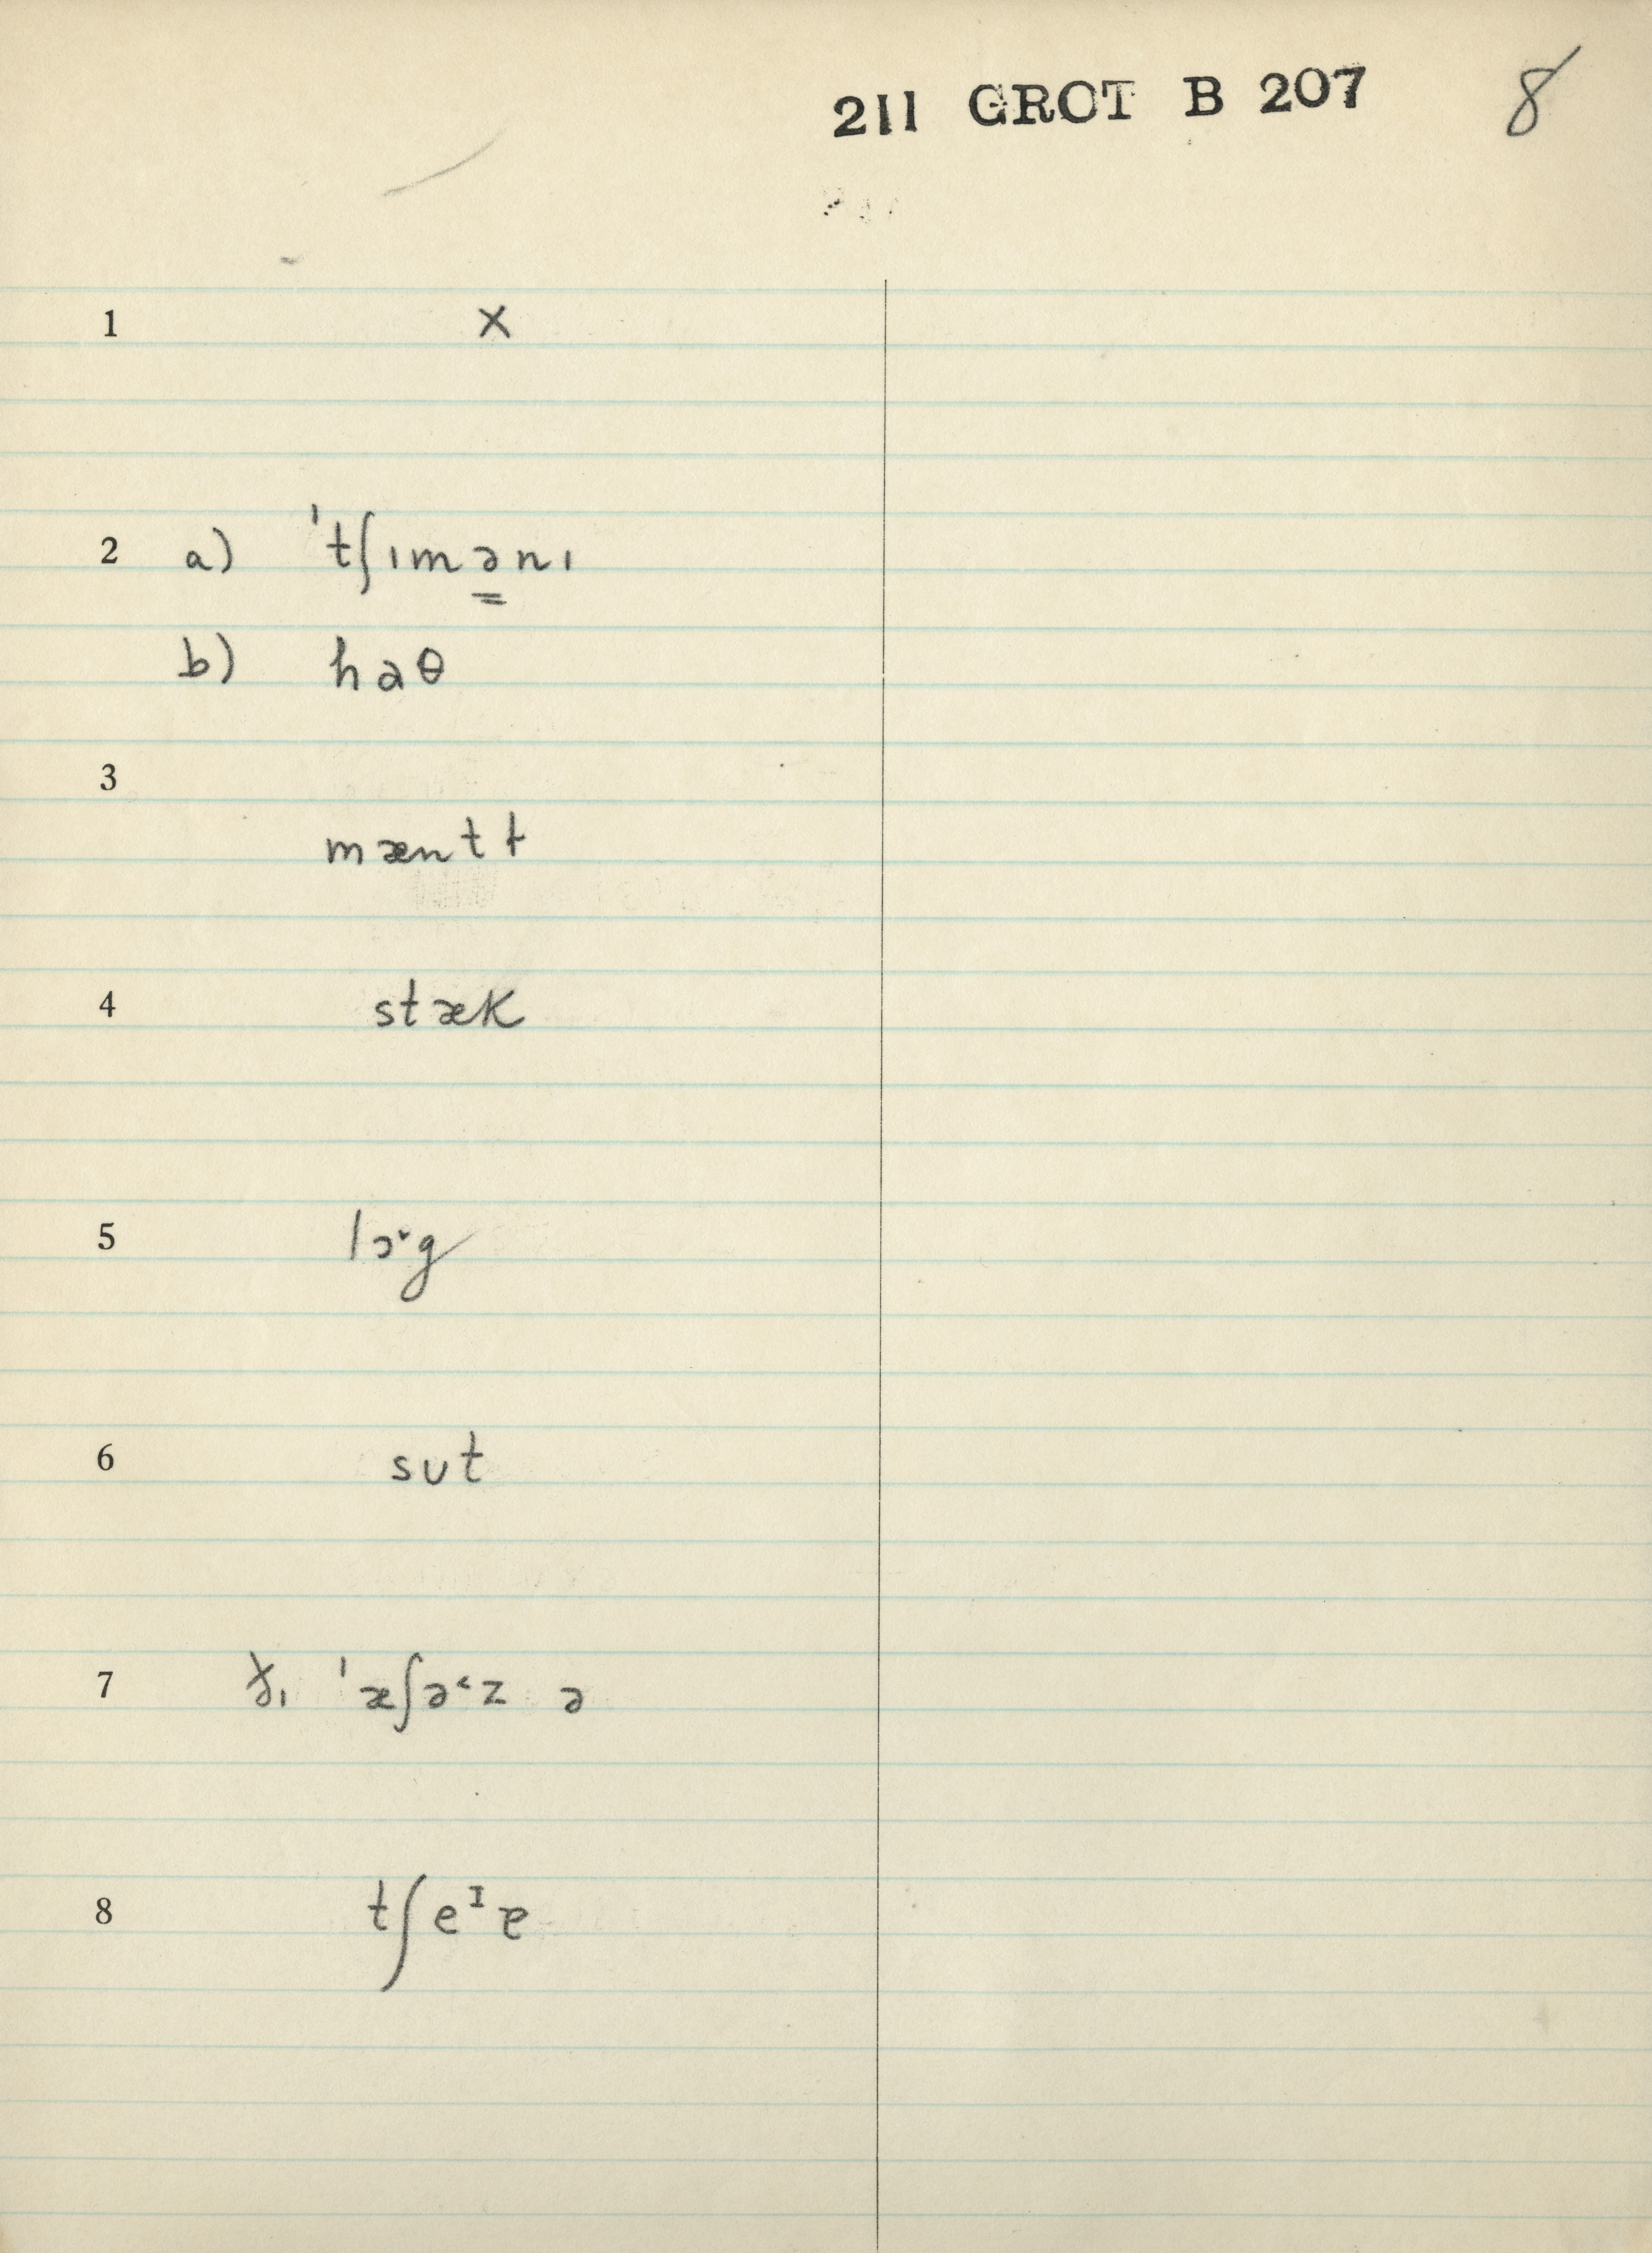 211 GROT B 207 8
1 x
2 a) ˈtʃɪmənɪ
b) haθ
3
mæntɫ
4 stæk
5 lɔ˅g
6 sut
7 ˈæʃə˂z ə
8 tʃeᴵɐ